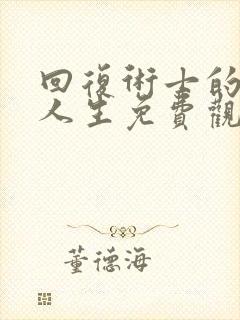 回復術士的
人生免費觀
董德海